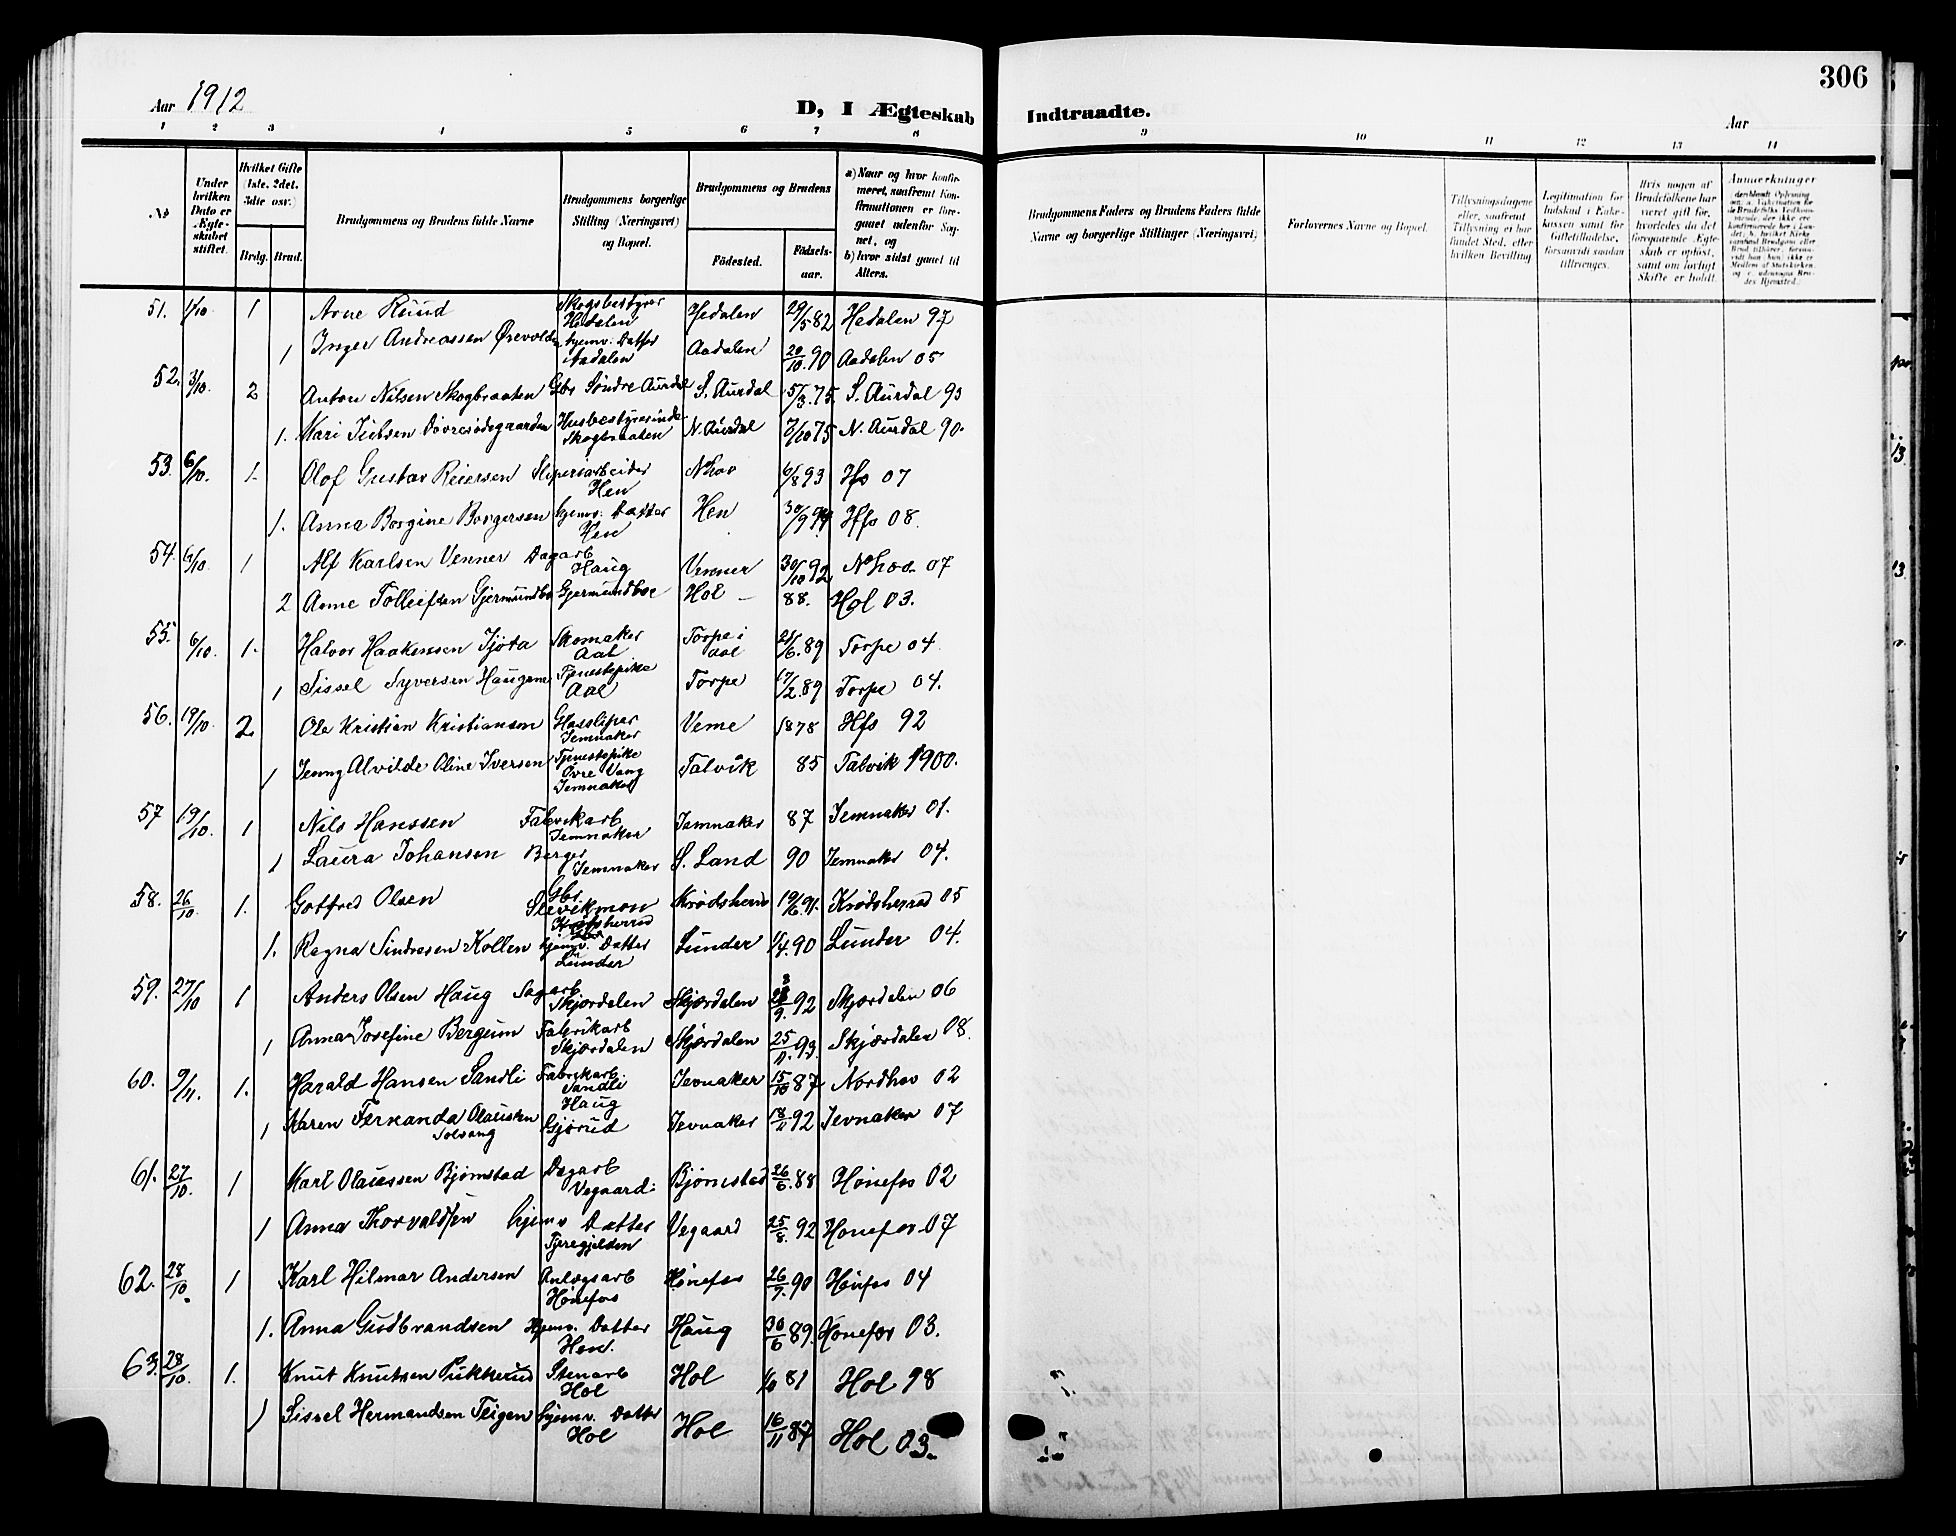 306
Aar 1912
D, I Ægteskab Indtraadte.
Aar
1 2 3 4 5 6 7 8 9 10 11 12 13 14
No
Under hvilken Dato er Ægteskabet stiftet.
Hvilket Gifte 1ste, 2det, 3die osv.)
Brdg. Brud.
Brudgommens og Brudens fulde Navne
Brudgommens borgerlige Stilling (Næringsvei) og Bopæl.
Brudgommens og Brudens
Födested.
Födsels-aar.
a) Naar og hvor konfirmeret, saafremt Konfirmationen er foregaaet udenfor Sognet, og
b) hvor sidst gaaet til Alters.
Brudgommens Faders og Brudens Faders fulde Navne og borgerlige Stillinger (Næringsvei)
Forlovernes Navne og Bopæl.
Tillysningsdagene eller, saafremt Tillysning ei har fundet Sted, efter hvilken Bevilling
Legitimation for Indskud i Enkekassen samt for Giftetilladelse, forsaavidt saadan tiltrænges.
Hvis nogen af Brudefolkene har været gift för, hvorledes da det foregaaende Ægteskab er oplöst, samt om lovligt Skifte er holdt.
Anmærkninger
51. 1/10 1 Arne Ruud Skogsbestyrer Hedalen Hedalen 29/5 82 Hedalen 97
1 Inger Andreassen Ørevolden hjemv. Datter Aadalen Aadalen 20/10 90 Aadalen 05
52. 3/10 2 Anton Nilsen Skogbraaten Gbr Søndre Aurdal S. Aurdal 5/3 75. S. Aurdal 90
1. Mari Juelsen Døvresødegaarden Husbestyrerinde Skogbraaten N. Aurdal 7/10 75 N. Aurdal 90.
53. 6/10. 1. Olof Gustav Reiersen Sliperiarbeider Hen Nhov 6/8 93 Hfs 07
1. Anna Borgine Borgersen hjemv. Datter Hen Hen 30/9 94 Hfs 08.
54. 6/10 1 Alf Karlsen Venner Dagarb Haug Venner 30/10 92 Nhov. 07
2 Anne Tolleifsen Gjermundbo Gjermundboe Hol – 88. Hol 03.
55. 6/10. 1. Halvor Haakensen Tjøta Skomaker Aal Torpe i aal 28/6. 89 Torpe 04.
1 Sissel Syversen Haugene Tjenestepike Aal Torpe 17/2. 89 Torpe 04.
56. 19/10 2 Ole Kristian Kristiansen Glassliper Jemnaker Veme 1878 Hfs 92
1 Jenny Alvilde Oline Iversen Tjenestepike Øvre Vang Jemnaker Talvik 85 Talvik 1900.
57 19/10. 1 Nils Hanssen Fabrikarb Jemnaker Jemnaker 87 Jemnaker 01.
1 Laura Johansen Berger Jemnaker S. Land 90 Jemnaker 04.
58. 26/10. 1. Gotfred Olsen Gbr. Slevikmoen Krødsherred Krødsherr 19/6. 91. Krødsherred 05
1. Ragna Sindresen Kollen hjemv. Datter Lunder Lunder 1/4. 90 Lunder 04.
59. 27/10 1 Anders Olsen Haug Sagarb Skjærdalen Skjærdalen 9. 92 Skjærdalen 06
1 Anna Josefine Bergum Fabrikarb Skjærdalen Skjærdalen 25/11. 93. Skjærdalen 08.
60. 9/11. 1. Harald Hansen Sandli Fabrikarb. Sandli Haug Jevnaker 15/10 87 Nordhov 02
1 Karen Fernanda Olaussen Solvang Gjørud Jevnaker 18/11 92 Jevnaker 07
61. 27/10. 1 Karl Olaussen Bjørnstad Dagarb Vegaard: Bjørnstad 26/6. 88 Hønefos 02
1 Anna Thorvaldsen hjemv Datter Tjeregjelden Vegaard 25/8. 92 Hønefos. 07
62. 28/10. 1 Karl Hilmar Andersen Anlægsarb Hønefos Hønefos 26/9. 90 Hønefos 04
1. Anna Gudbrandsen Hjemv. Datter Hen. Haug 30/6 89. Hønefos 03.
63. 28/10. 1. Knut Knutsen Pukkerud Stenarb Hol Hol 81 Hol 98
1 Sissel Hermandsen Teigen hjemv. Datter Hol Hol 16/11 87 Hol 03.